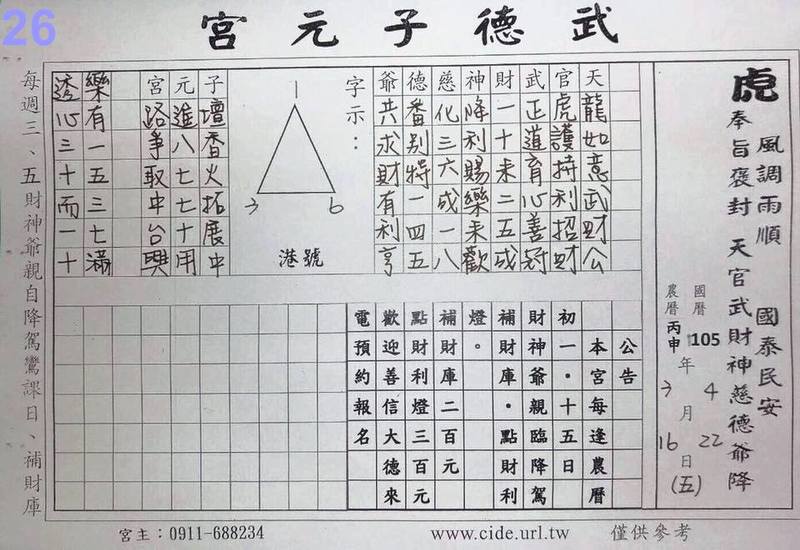 26
武德子元宮
虎
風調雨順 國泰民安
奉旨褒封天官武財神慈德爺降
國曆 105 年 4 月 22 日 (五)
農曆丙申 年 3 月 16 日
天龍如意武財公
官虎護持利招財
武正道育心善
財一十未二五
神降利賜樂未歡
慈化三六成一八
德番別特一四五
爺共求財有利亨
字示：
1
3 6
港號
子壇香火拓展中
元進八七七十用
宮路爭取中台興
樂有一五三七滿
透心三十而一十
公告
本宮每逢農曆
初一．十五日
財神爺親臨降駕
補財庫．點財利
燈。
補財庫二百元
點財利燈三百元
歡迎善信大德來
電預約報名
每週三、五財神爺親自降駕鸞課日、補財庫
宮主：0911-688234
www.cide.url.tw
僅供參考